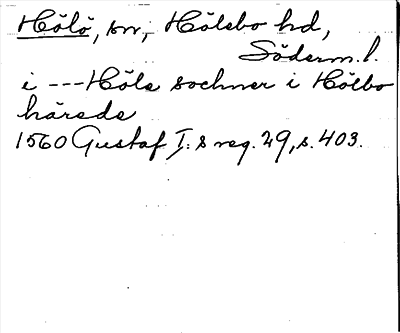 Hölö, sn, Hölebo hd,
Söderm. l.
i --- Höle sochner i Hölbo
härede
1560 Gustaf I:s reg. 29, s. 403.